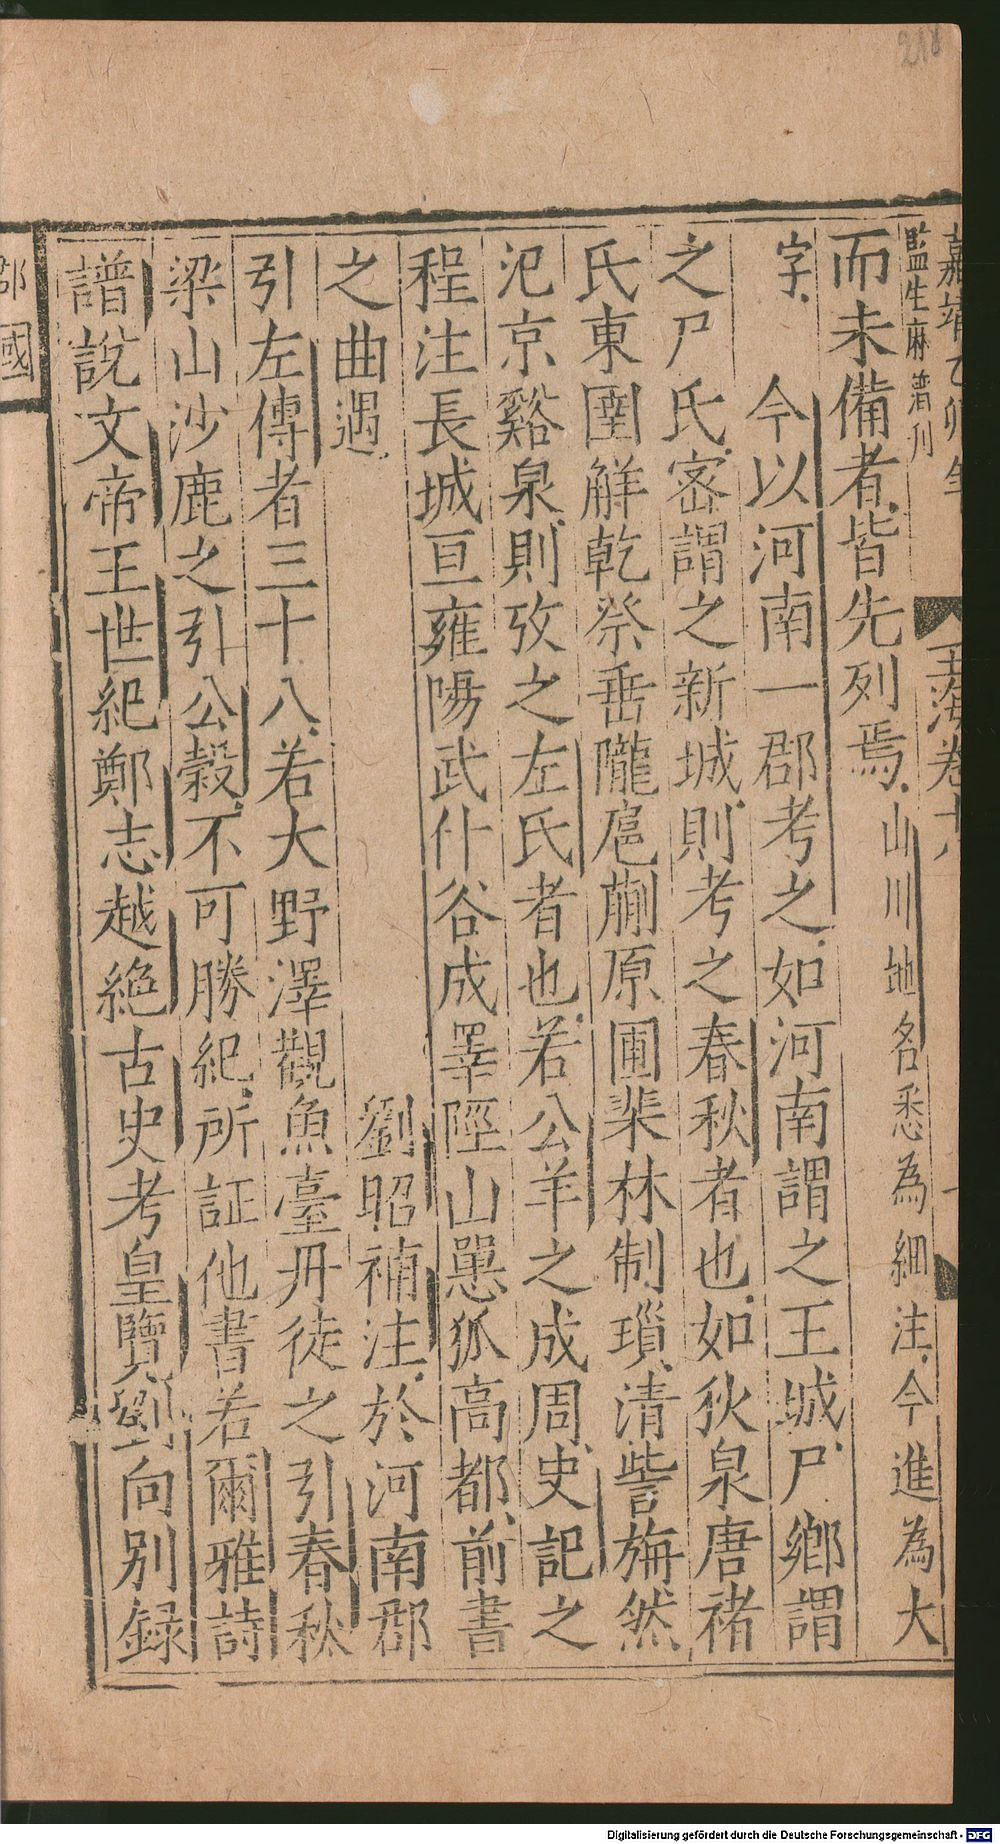 嘉靖乙卯年
監生麻濟刊
玉海卷十八
而未備者皆先列焉山川地名悉為細注今進為大
字 今以河南一郡考之如河南謂之王城尸鄉謂
之尸氏宻謂之新城則考之春秋者也如狄泉唐褚
氏東圉解乾祭垂隴扈蒯原圃棐林制瑣清訾旃然
氾京谿泉則攷之左氏者也若公羊之成周史記之
程注長城亘雍陽武什谷成睪陘山㒺狐高都前書
之曲遇 劉昭補注於河南郡
引左傳者三十八若大野澤觀魚臺丹徒之引春秋
梁山沙鹿之引公穀不可勝紀所証他書若爾雅詩
譜說文帝王世紀鄭志越絕古史考皇覽劉向別録
郡國
218
Digitalisierung gefördert durch die Deutsche Forschungsgemeinschaft - DFG